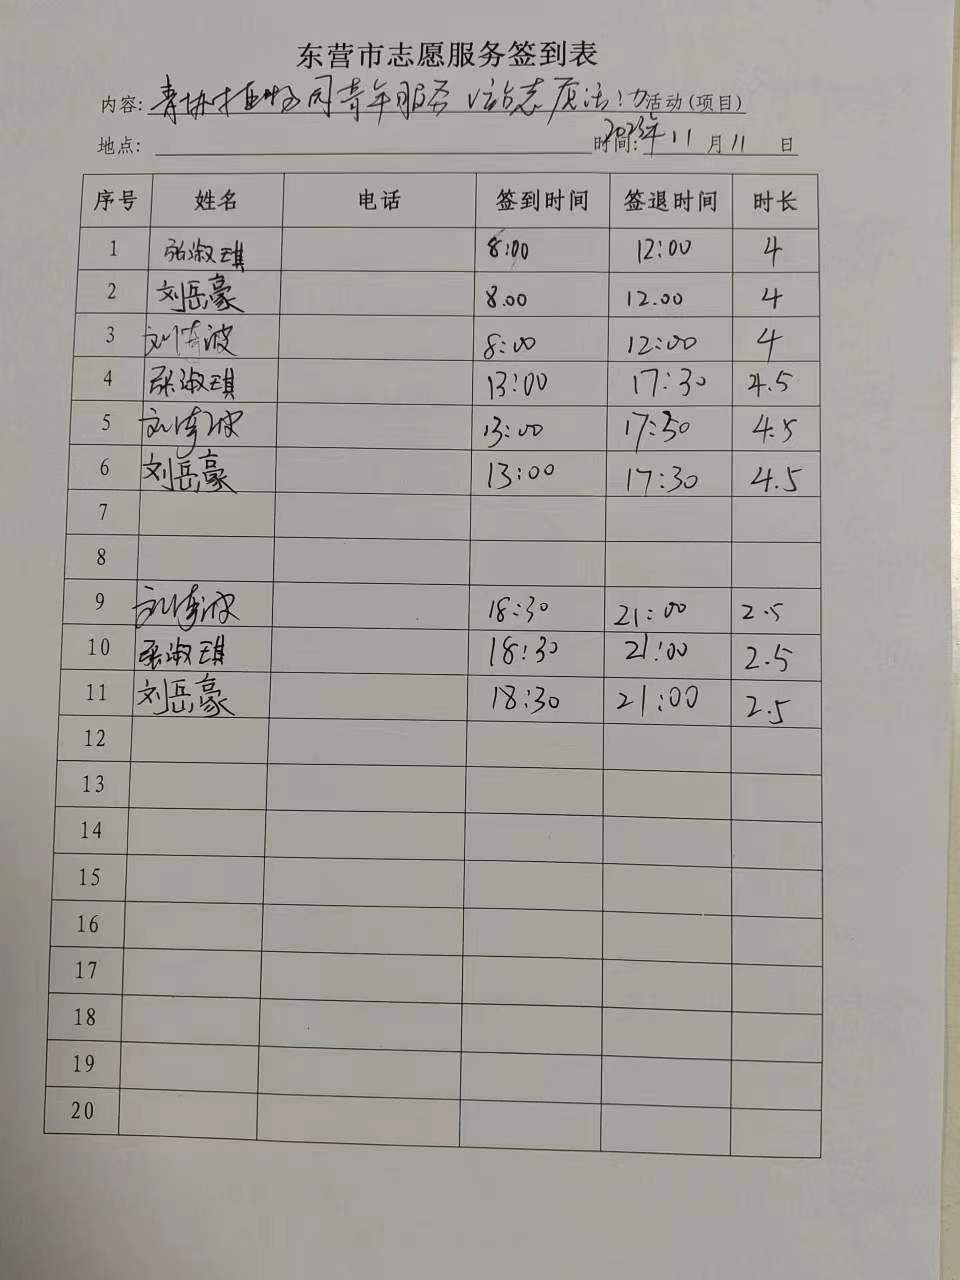 东营市志愿服务签到表
内容: 青协 青年服务 志愿活动 活动(项目)
地点: 时间: 2023年 11 月 11 日
序号 姓名 电话 签到时间 签退时间 时长
1 张淑琪 8:00 12:00 4
2 刘岳豪 8.00 12.00 4
3 刘 波 8:00 12:00 4
4 张淑琪 13:00 17:30 4.5
5 刘 波 13:00 17:30 4.5
6 刘岳豪 13:00 17:30 4.5
7
8
9 刘 波 18:30 21:00 2.5
10 张淑琪 18:30 21:00 2.5
11 刘岳豪 18:30 21:00 2.5
12
13
14
15
16
17
18
19
20